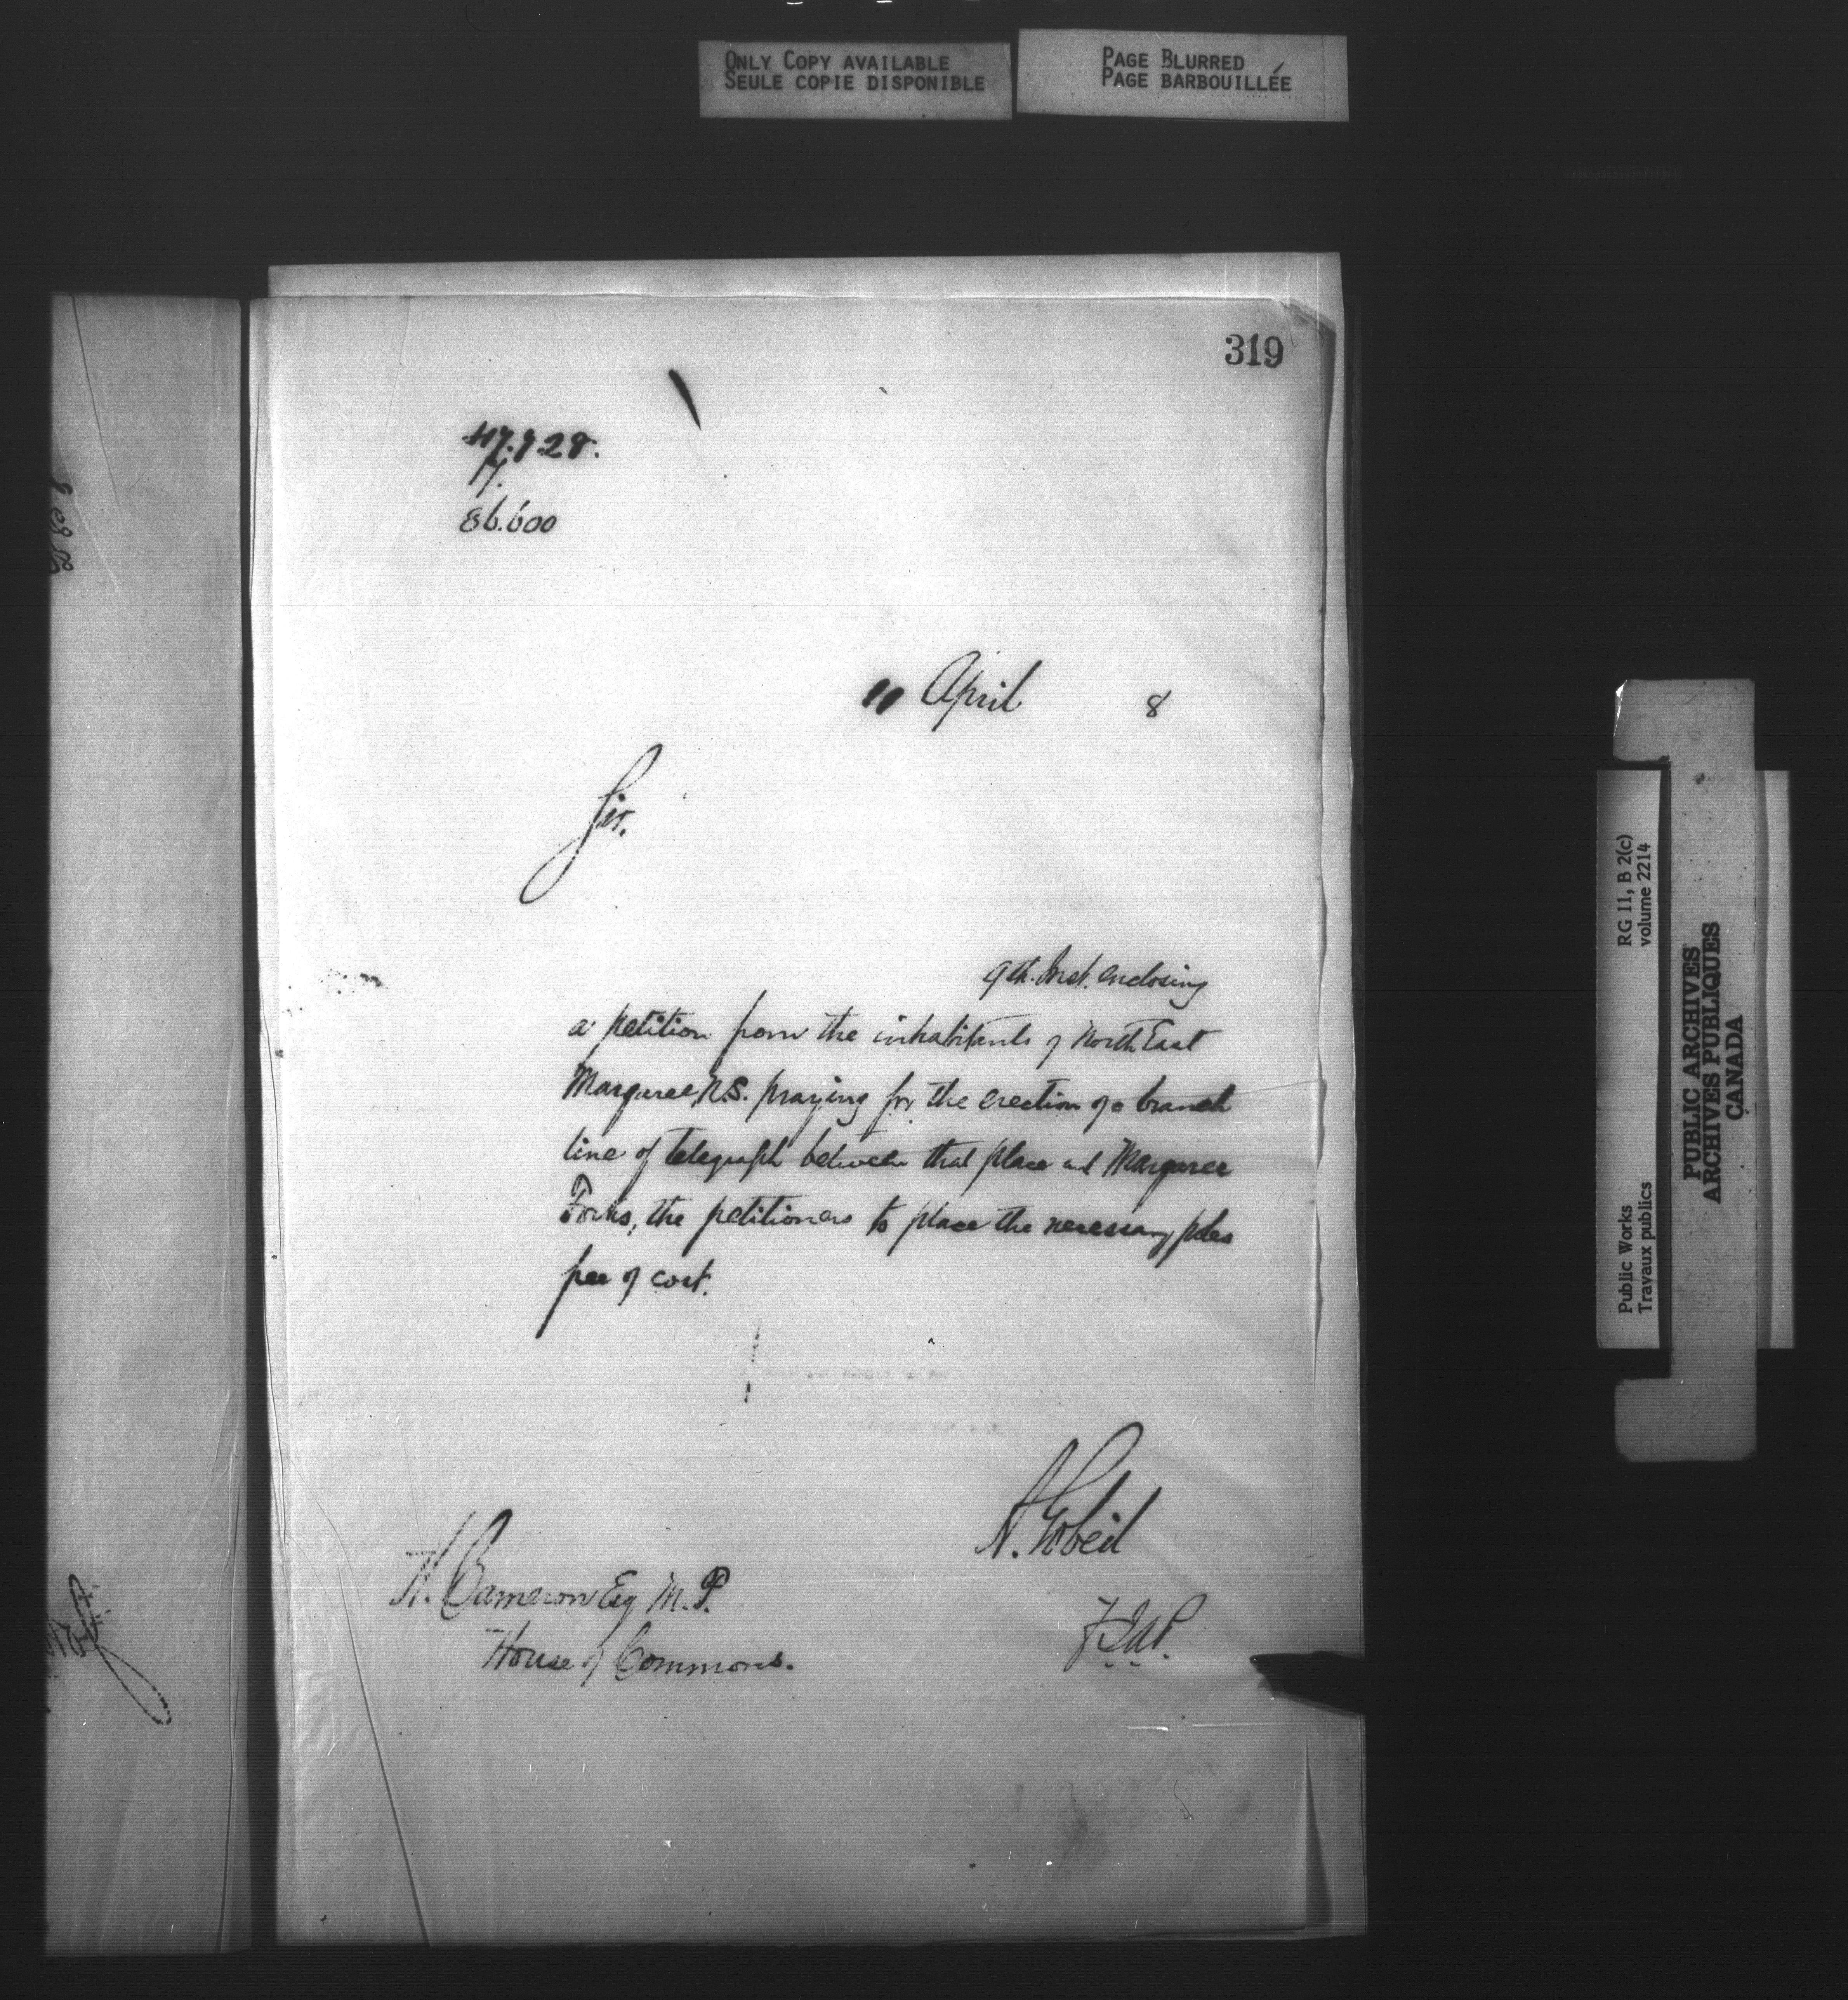 ONLY COPY AVAILABLE
SEULE COPIE DISPONIBLE
PAGE BLURRED
PAGE BARBOUILLÉE
319
86.600
11 April 8
Sir.
9th. Inst. enclosing
a petition from the inhabitants of North East
Margaree, N.S. praying for the erection of a branch
line of telegraph between that place and Margaree
Forks, the petitioners to place the necessary poles
free of cost.
A. Gobeil
H. Cameron Esq M.P.
House of Commons.
RG 11, B 2(c)
volume 2214
Public Works
Travaux publics
PUBLIC ARCHIVES
ARCHIVES PUBLIQUES
CANADA